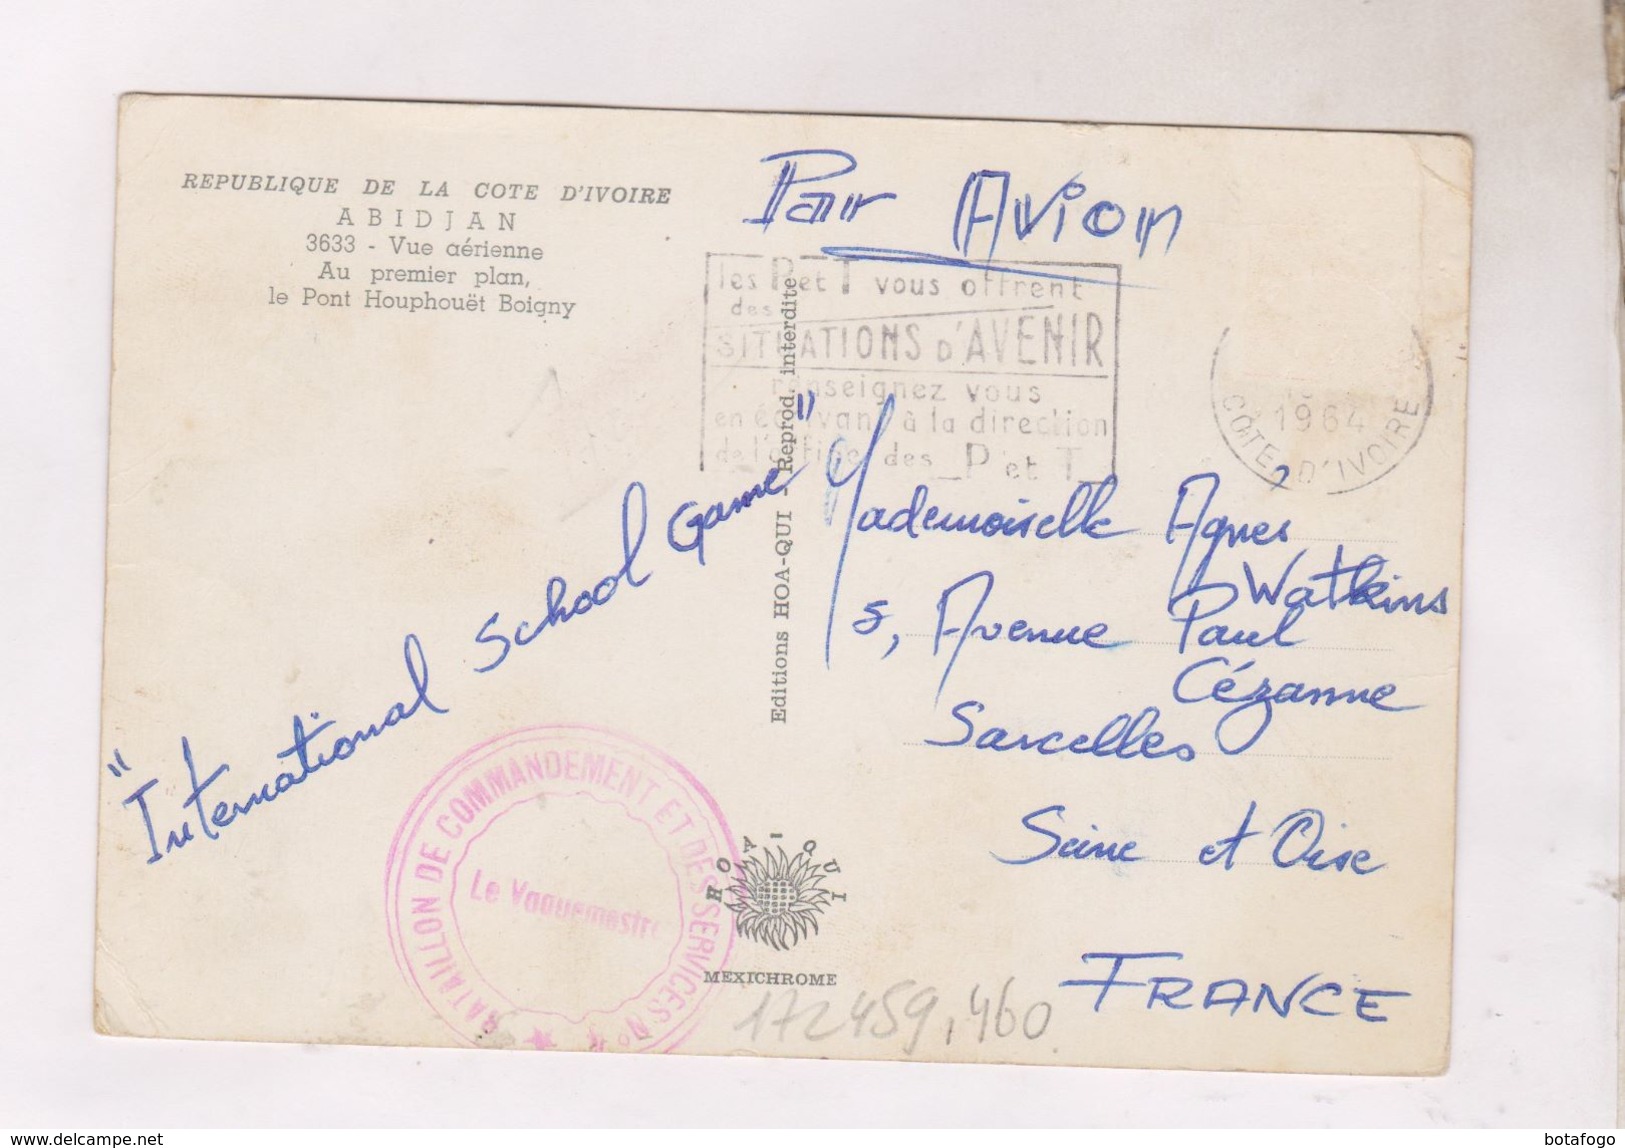 REPUBLIQUE DE LA COTE D'IVOIRE
ABIDJAN
3633 - Vue aérienne
Au premier plan,
le Pont Houphouët Boigny
Par Avion
les P et T vous offrent
des
SITUATIONS D'AVENIR
renseignez vous
en écrivant à la direction
de l'office des P et T
1964
CÔTE D'IVOIRE
"International School Game"
Editions HOA-QUI - Reprod. interdite
Mademoiselle Agnes
Watkins
5, Avenue Paul
Cézanne
Sarcelles
Seine et Oise
FRANCE
BATAILLON DE COMMANDEMENT ET DES SERVICES No
Le Vaguemestre
HOA QUI
MEXICHROME
172459,460
delcampe.net
botafogo